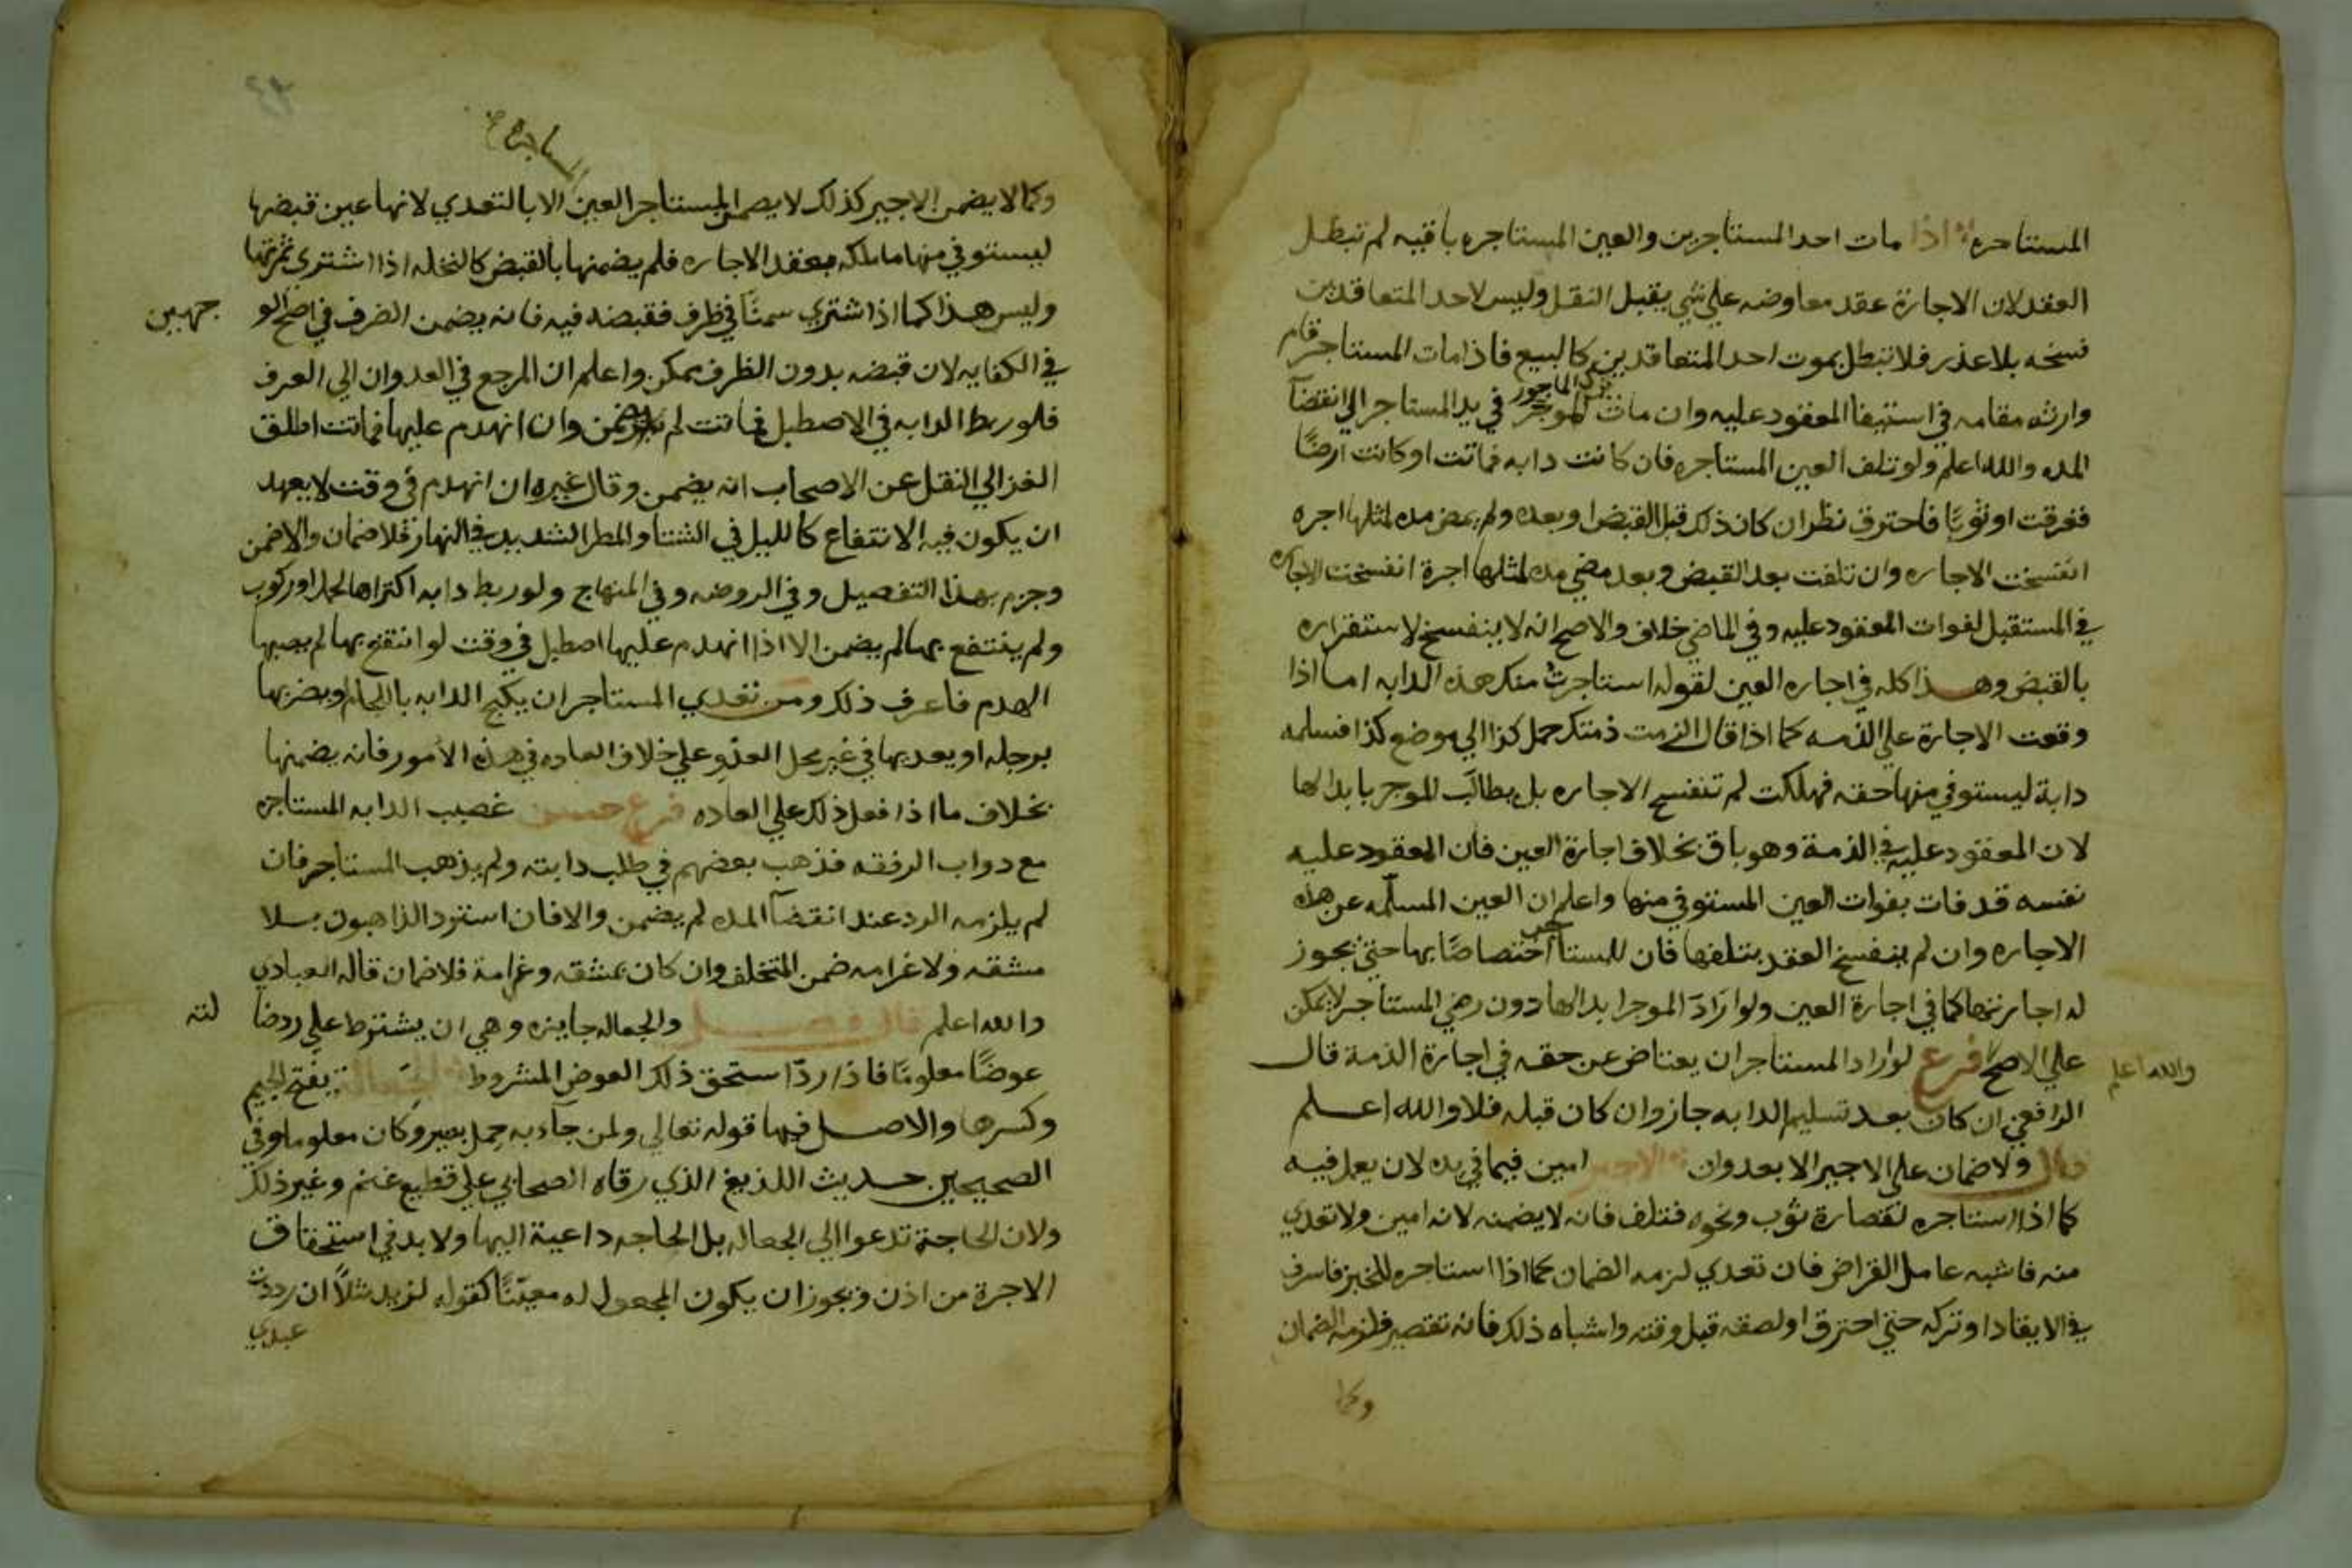 المستاجره اذا مات احد المستاجرين والعين المستاجره باقيه لم تبطل
العقد لان الاجارة عقد معاوضه علي شي يقبل النقل وليس لاحد المتعاقدين
نسخه بلا عذر فلا تبطل بموت احد المتعاقدين كالبيع فاذا مات المستاجر قام
وارثه مقامه في استيفا المعقود عليه وان مات الموجر ترك الماجور في يد المستاجر الي انقضآ
المده والله اعلم ولو تلف العين المستاجره فان كانت دابه فماتت او كانت ارضًا
فغرقت او ثوبًا فاحترق نظر ان كان ذلك قبل القبض او بعده ولم يمض مده لمثلها اجره
انفسخت الاجاره وان تلفت بعد القبض وبعد مضي مده لمثلها اجرة انفسخت الاجاره
في المستقبل لفوات المعقود عليه وفي الماضي خلاف والاصح انه لا ينفسخ لاستقراره
بالقبض وهذا كله في اجاره العين لقوله استاجرت منك هذه الدابه اما اذا
وقعت الاجارة علي الذمه كما اذا قال الزمت ذمتك حمل كذا الي موضع كذا فسلمه
دابة ليستوفي منها حقه فهلكت لم تنفسخ الاجاره بل يطالب الموجر بابدالها
لان المعقود عليه في الذمة وهو باق بخلاف اجارة العين فان المعقود عليه
نفسه قد فات بفوات العين المستوفي منها واعلم ان العين المسلمه عن هذه
الاجاره وان لم ينفسخ العقد بتلفها فان للمستاجر اختصاصًا بها حتي يجوز
له اجارتها كما في اجارة العين ولو اراد الموجر ابدالها دون رضي المستاجر لا يمكن
علي الاصح فرع لو اراد المستاجر ان يعتاض عن حقه في اجارة الذمة قال
والله اعلم
الرافعي ان كان بعد تسليم الدابه جاز وان كان قبله فلا والله اعلم
قال ولا ضمان علي الاجير الا بعدوان الاجير امين فيما في يده لان يعمل فيه
كما اذا استاجره لقصارة ثوب ونحوه فتلف فانه لا يضمنه لانه امين ولا تعدي
منه فاشبه عامل القراض فان تعدي لزمه الضمان كما اذا استاجره للخبز فاسرف
في الايقاد او تركه حتي احترق او لصقه قبل وقته واشباه ذلك فانه تقصير فلزمه الضمان
وكما
وكما لا يضمن الاجير كذلك لا يضمن المستاجر العين المستاجره الا بالتعدي لانها عين قبضها
ليستوفي منها ما ملكه بعقد الاجاره فلم يضمنها بالقبض كالنخله اذا اشتري ثمرتها
وليس هذا كما اذا اشتري سمنًا في ظرف فقبضه فيه فانه يضمن الضرف في اصح الو
جهين
في الكفايه لان قبضه بدون الظرف ممكن واعلم ان المرجع في العدوان الي العرف
فلو ربط الدابه في الاصطبل فماتت لم يضمن وان انهدم عليها فماتت اطلق
الغزالي النقل عن الاصحاب انه يضمن وقال غيره ان انهدم في وقت لا يعهد
ان يكون فيه الانتفاع كالليل في الشتا والمطر الشديد في النهار فلا ضمان والا ضمن
وجزم بهذا التفصيل وفي الروضه وفي المنهاج ولو ربط دابه اكتراها لحمل او ركوب
ولم ينتفع بها لم يضمن الا اذا انهدم عليها اصطبل في وقت لو انتفع بها لم يصبها
الهدم فاعرف ذلك ومن تعدي المستاجر ان يكبح الدابه باللجام او يضربها
برجله او يعد بها في غير محل العدو علي خلاف العاده في هذه الامور فانه يضمنها
بخلاف ما اذا فعل ذلك علي العاده فرع حسن غصب الدابه المستاجره
مع دواب الرفقه فذهب بعضهم في طلب دابته ولم يذهب المستاجر فان
لم يلزمه الرد عند انقضآ المده لم يضمن والا فان استرد الذاهبون بلا
مشقه ولا غرامه ضمن المتخلف وان كان بمشقه وغرامة فلا ضمان قاله العبادي
والله اعلم قال فصل والجعاله جايزه وهي ان يشترط علي رد ضا
لته
عوضًا معلومًا فاذا ردّ استحق ذلك العوض المشروط الجعاله بفتح الجيم
وكسرها والاصل فيها قوله تعالي ولمن جآء به حمل بعير وكان معلوما وفي
الصحيحين حديث اللديغ الذي رقاه الصحابي علي قطيع غنم وغير ذلك
ولان الحاجة تدعوا الي الجعاله بل الحاجه داعية اليها ولا بد في استحقاق
الاجرة من اذن ويجوز ان يكون المجعول له معينًا كقوله لزيد مثلًا ان رددت
عبدي